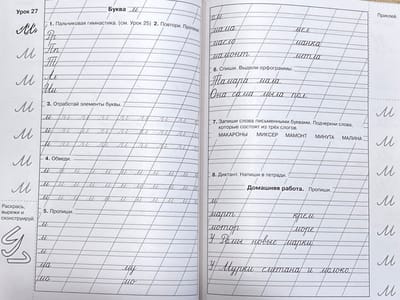 Урок 27
Буква м
1. Пальчиковая гимнастика. (см. Урок 25) 2. Повтори.
Пп
Тт
3. Отработай элементы буквы.
4. Обведи.
5. Пропиши.
Раскрась,
вырежи и
сконструируй.
ма му
мо мю
ем
мама мел
масло манка
мамонт метла
6. Спиши. Выдели орфограммы.
Тамара мала.
Она сама мыла пол.
7. Запиши слова письменными буквами. Подчеркни слова,
которые состоят из трёх слогов.
МАКАРОНЫ МИКСЕР МАМОНТ МИНУТА МАЛИНА
8. Диктант. Напиши в тетради.
Домашняя работа. Пропиши.
м
март крем
мотор море
У Ромы новые марки.
У Мурки сметана и молоко.
Приклей